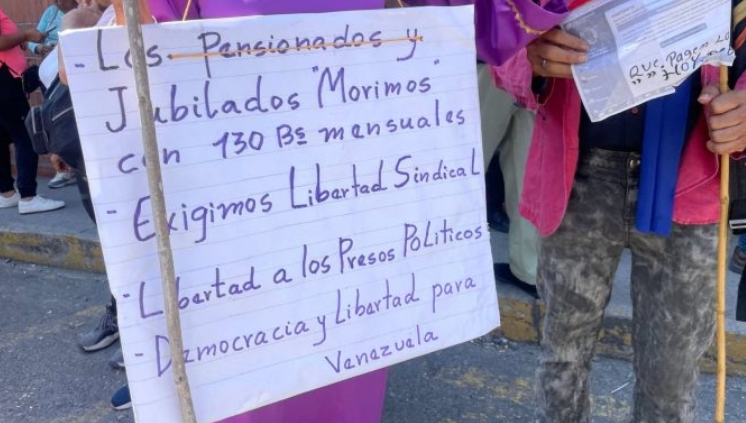 - Los Pensionados y
Jubilados "Morimos"
con 130 Bs mensuales
- Exigimos Libertad Sindical
- Libertad a los Presos Politicos
- Democracia y Libertad para
Venezuela
Que Paguen